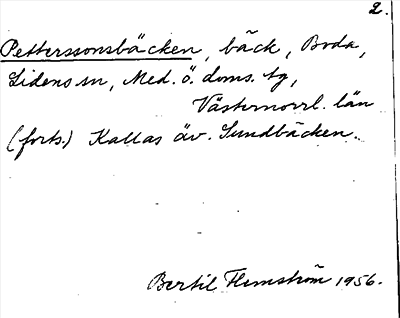 2.
Petterssonsbäcken, bäck, Boda,
Lidens sn, Med. ö. doms. tg,
Västernorrl. län
(forts.) Kallas äv. Sundbäcken.
Bertil Flemström 1956.